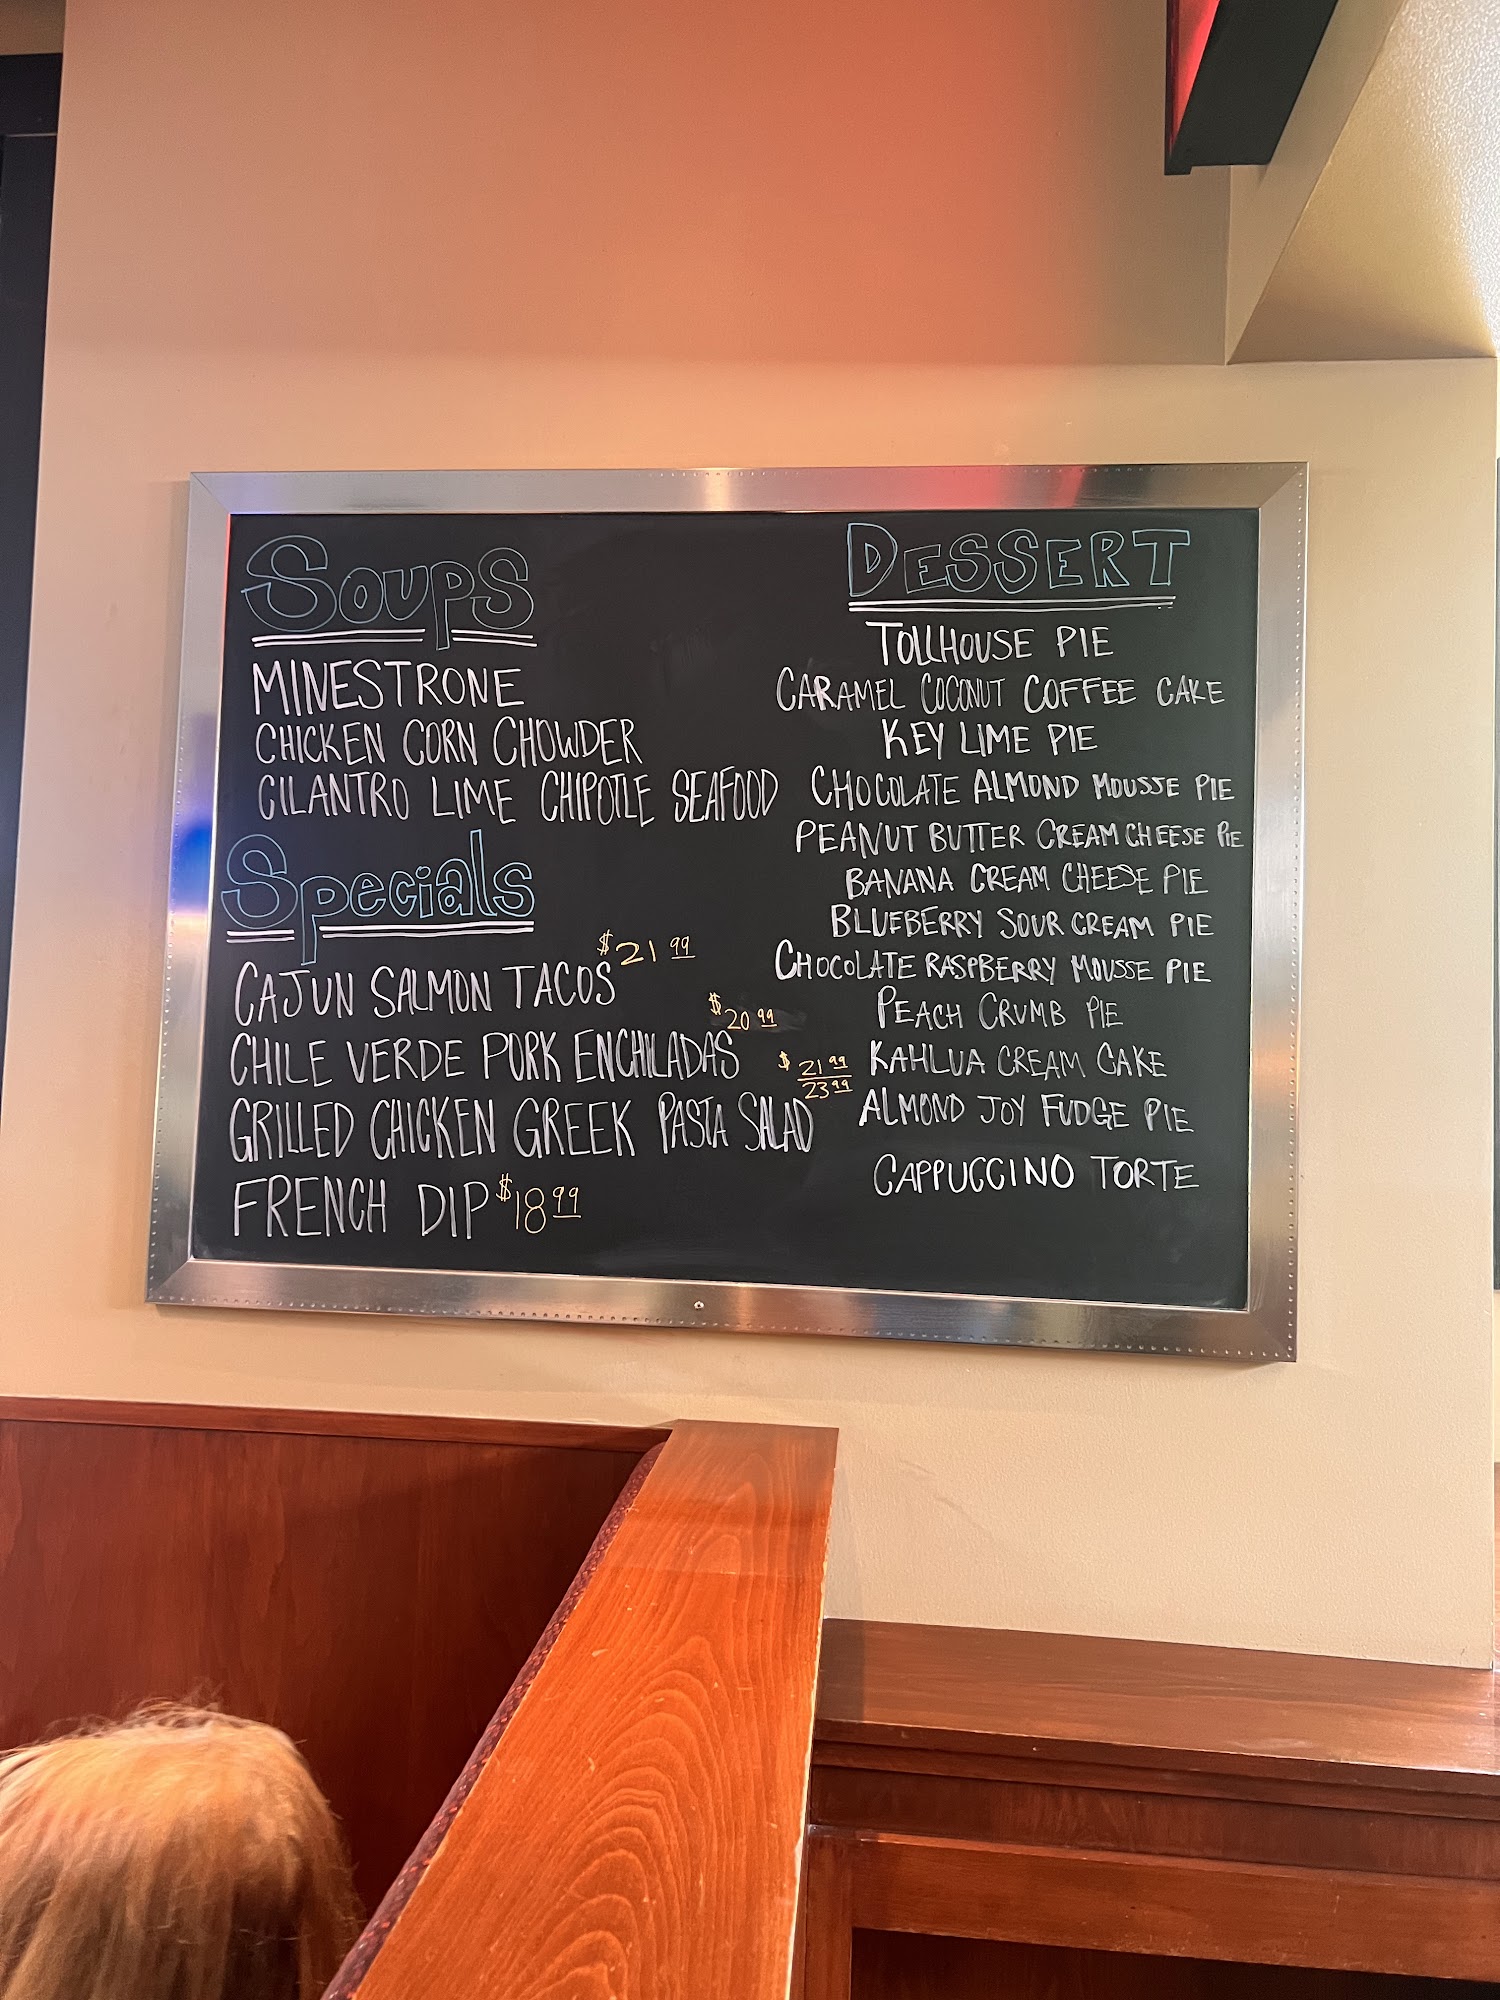 Soups
MINESTRONE
CHICKEN CORN CHOWDER
CILANTRO LIME CHIPOTLE SEAFOOD
Specials
CAJUN SALMON TACOS $21.99
CHILE VERDE PORK ENCHILADAS $20.99
GRILLED CHICKEN GREEK PASTA SALAD $21.99 23.99
FRENCH DIP $18.99
DESSERT
TOLLHOUSE PIE
CARAMEL COCONUT COFFEE CAKE
KEY LIME PIE
CHOCOLATE ALMOND MOUSSE PIE
PEANUT BUTTER CREAM CHEESE PIE
BANANA CREAM CHEESE PIE
BLUEBERRY SOUR CREAM PIE
CHOCOLATE RASPBERRY MOUSSE PIE
PEACH CRUMB PIE
KAHLUA CREAM CAKE
ALMOND JOY FUDGE PIE
CAPPUCCINO TORTE